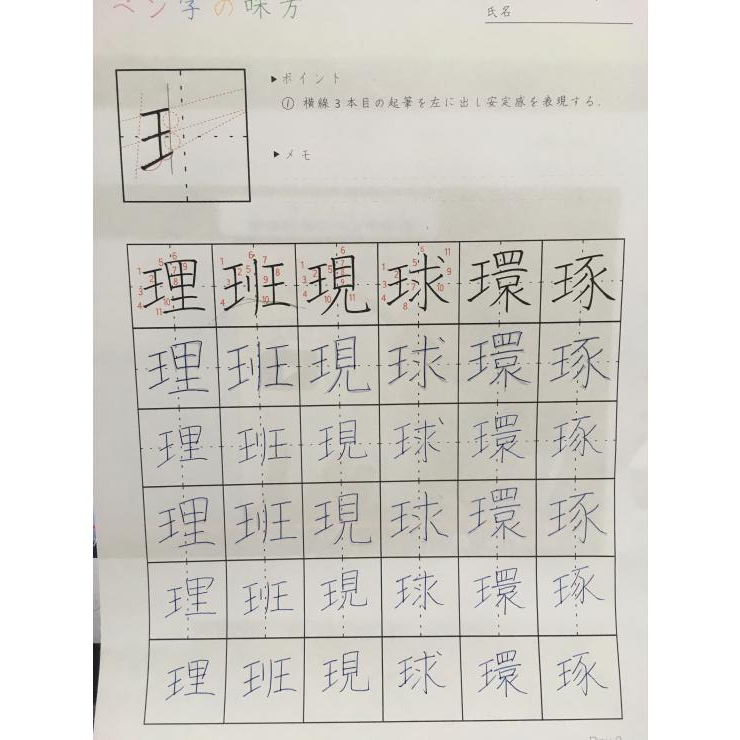 ペン字の味方
氏名
▶ポイント
① 横線3本目の起筆を左に出し安定感を表現する.
▶メモ
理 班 現 球 環 琢
理 班 現 球 環 琢
理 班 現 球 環 琢
理 班 現 球 環 琢
理 班 現 球 環 琢
理 班 現 球 環 琢